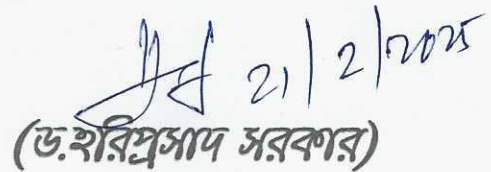 21/2/2025
(ড.হরিপ্রসাদ সরকার)